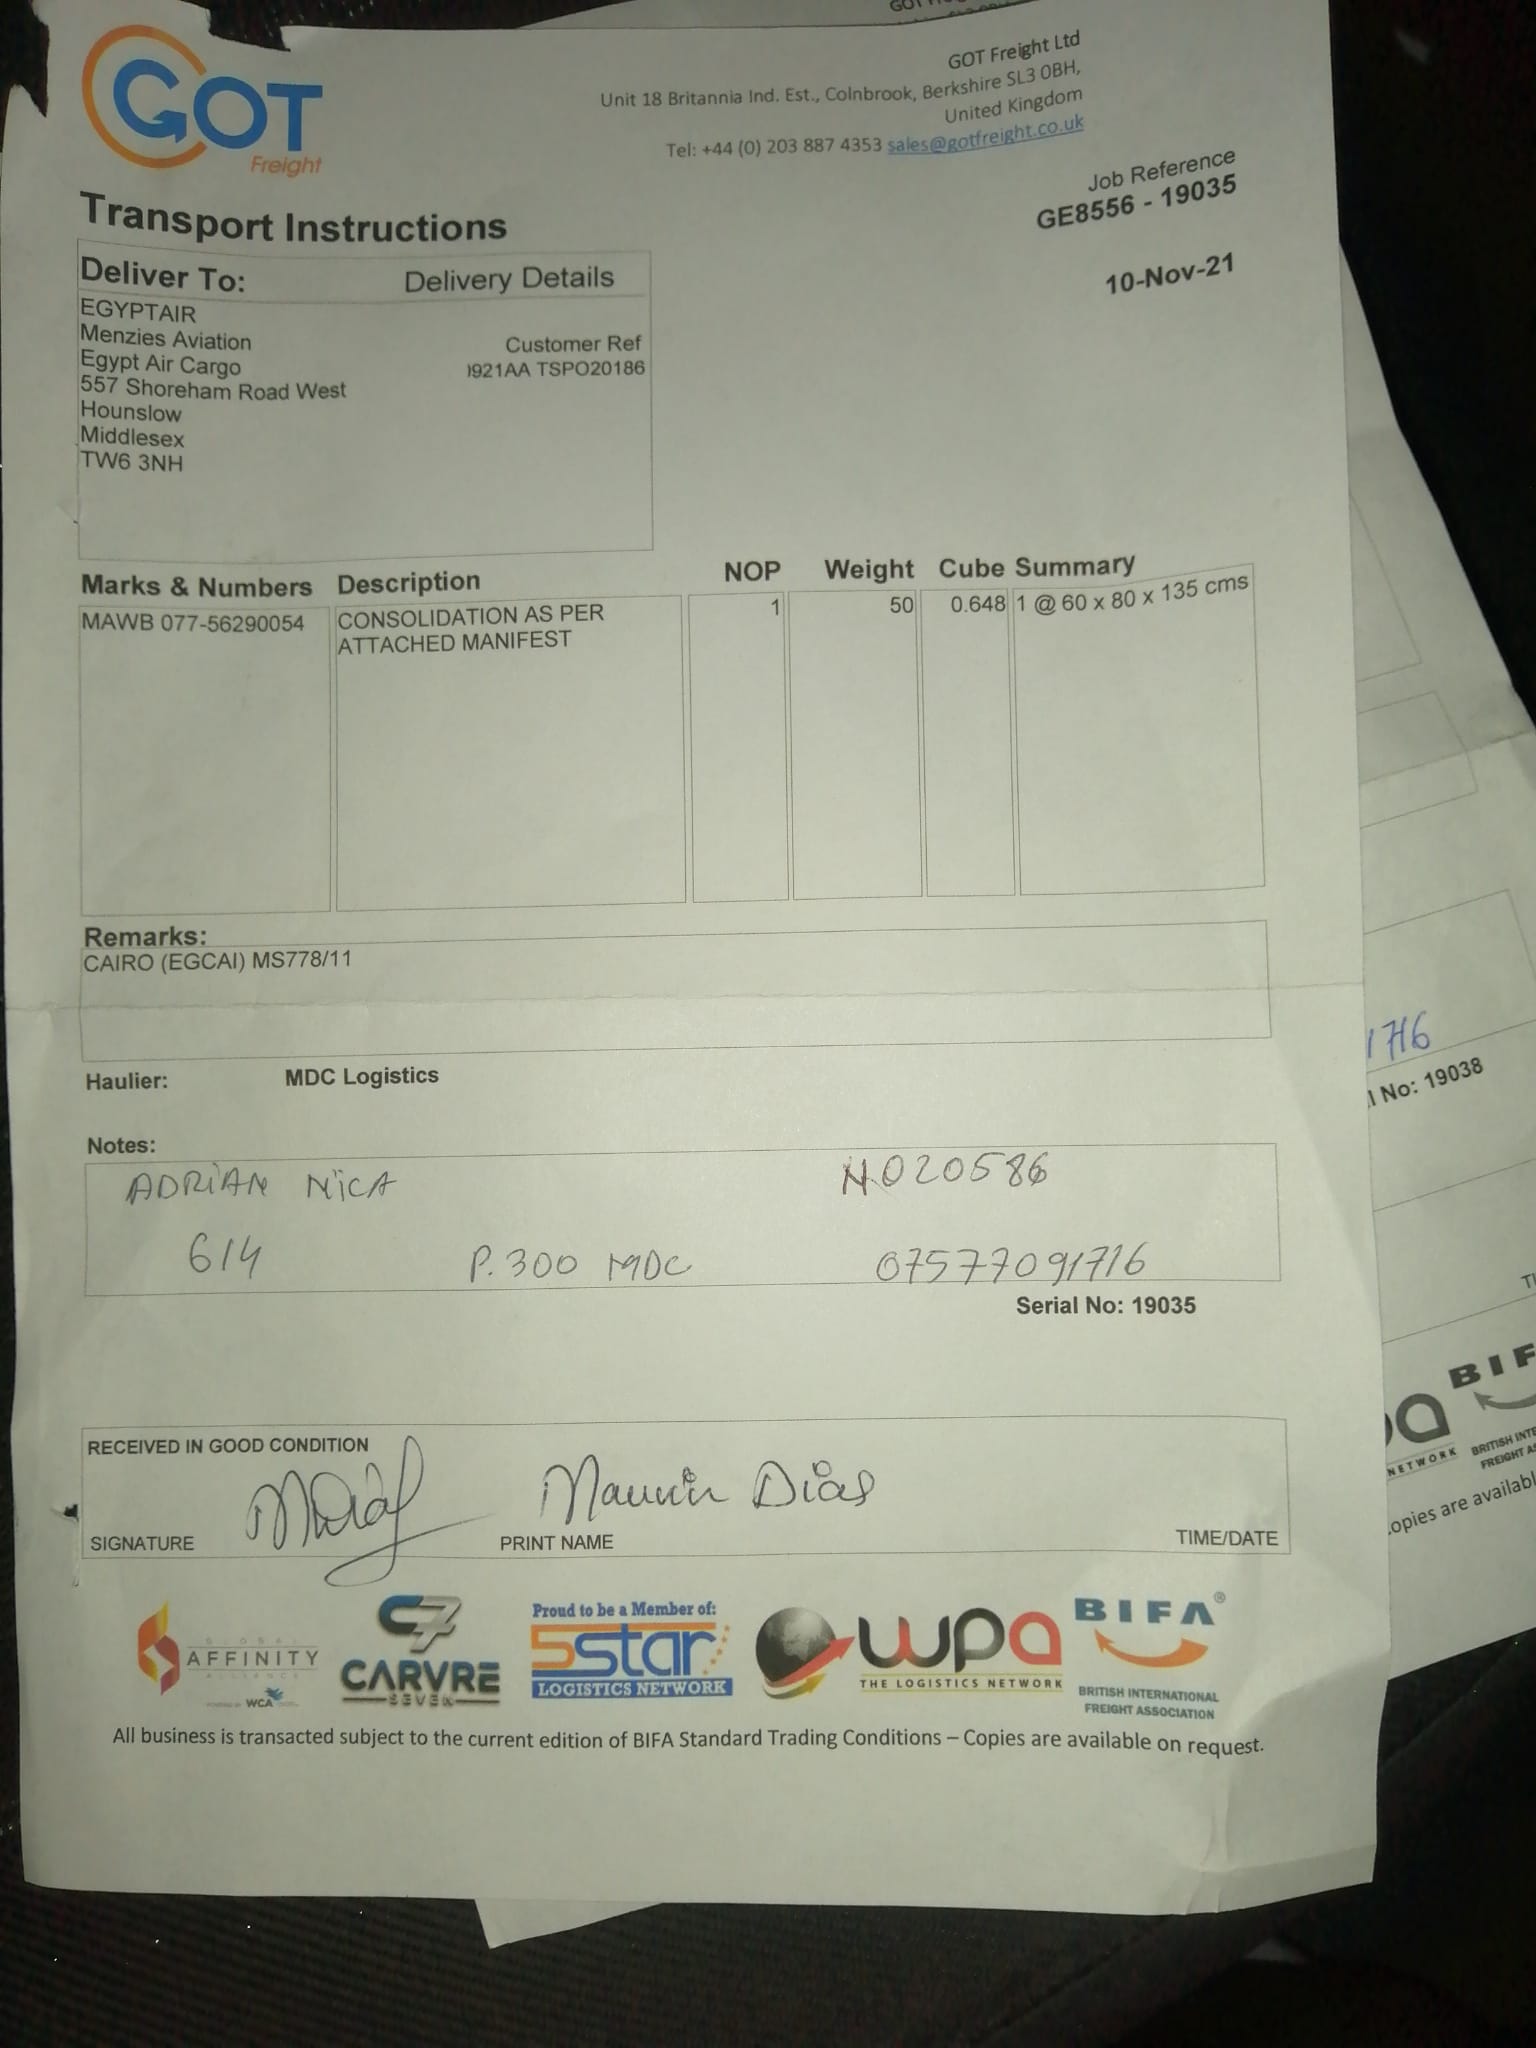 GOT
Freight
GOT Freight Ltd
Unit 18 Britannia Ind. Est., Colnbrook, Berkshire SL3 0BH,
United Kingdom
Tel: +44 (0) 203 887 4353 sales@gotfreight.co.uk
Job Reference
GE8556 - 19035
10-Nov-21
Transport Instructions
Deliver To: Delivery Details
EGYPTAIR
Menzies Aviation Customer Ref
Egypt Air Cargo )921AA TSPO20186
557 Shoreham Road West
Hounslow
Middlesex
TW6 3NH
Marks & Numbers Description NOP Weight Cube Summary
MAWB 077-56290054 CONSOLIDATION AS PER 1 50 0.648 1 @ 60 x 80 x 135 cms
ATTACHED MANIFEST
Remarks:
CAIRO (EGCAI) MS778/11
Haulier: MDC Logistics
Notes:
ADRIAN NICA N020586
614 P.300 MDC 07577091716
Serial No: 19035
RECEIVED IN GOOD CONDITION
Dias
SIGNATURE PRINT NAME TIME/DATE
GLOBAL
AFFINITY
ALLIANCE
WCA
C7
CARVRE
SEVEN
Proud to be a Member of:
5star
LOGISTICS NETWORK
wpa
THE LOGISTICS NETWORK
BIFA®
BRITISH INTERNATIONAL
FREIGHT ASSOCIATION
All business is transacted subject to the current edition of BIFA Standard Trading Conditions – Copies are available on request.
1716
l No: 19038
BIF
pa
NETWORK
BRITISH INTE
FREIGHT AS
opies are availabl